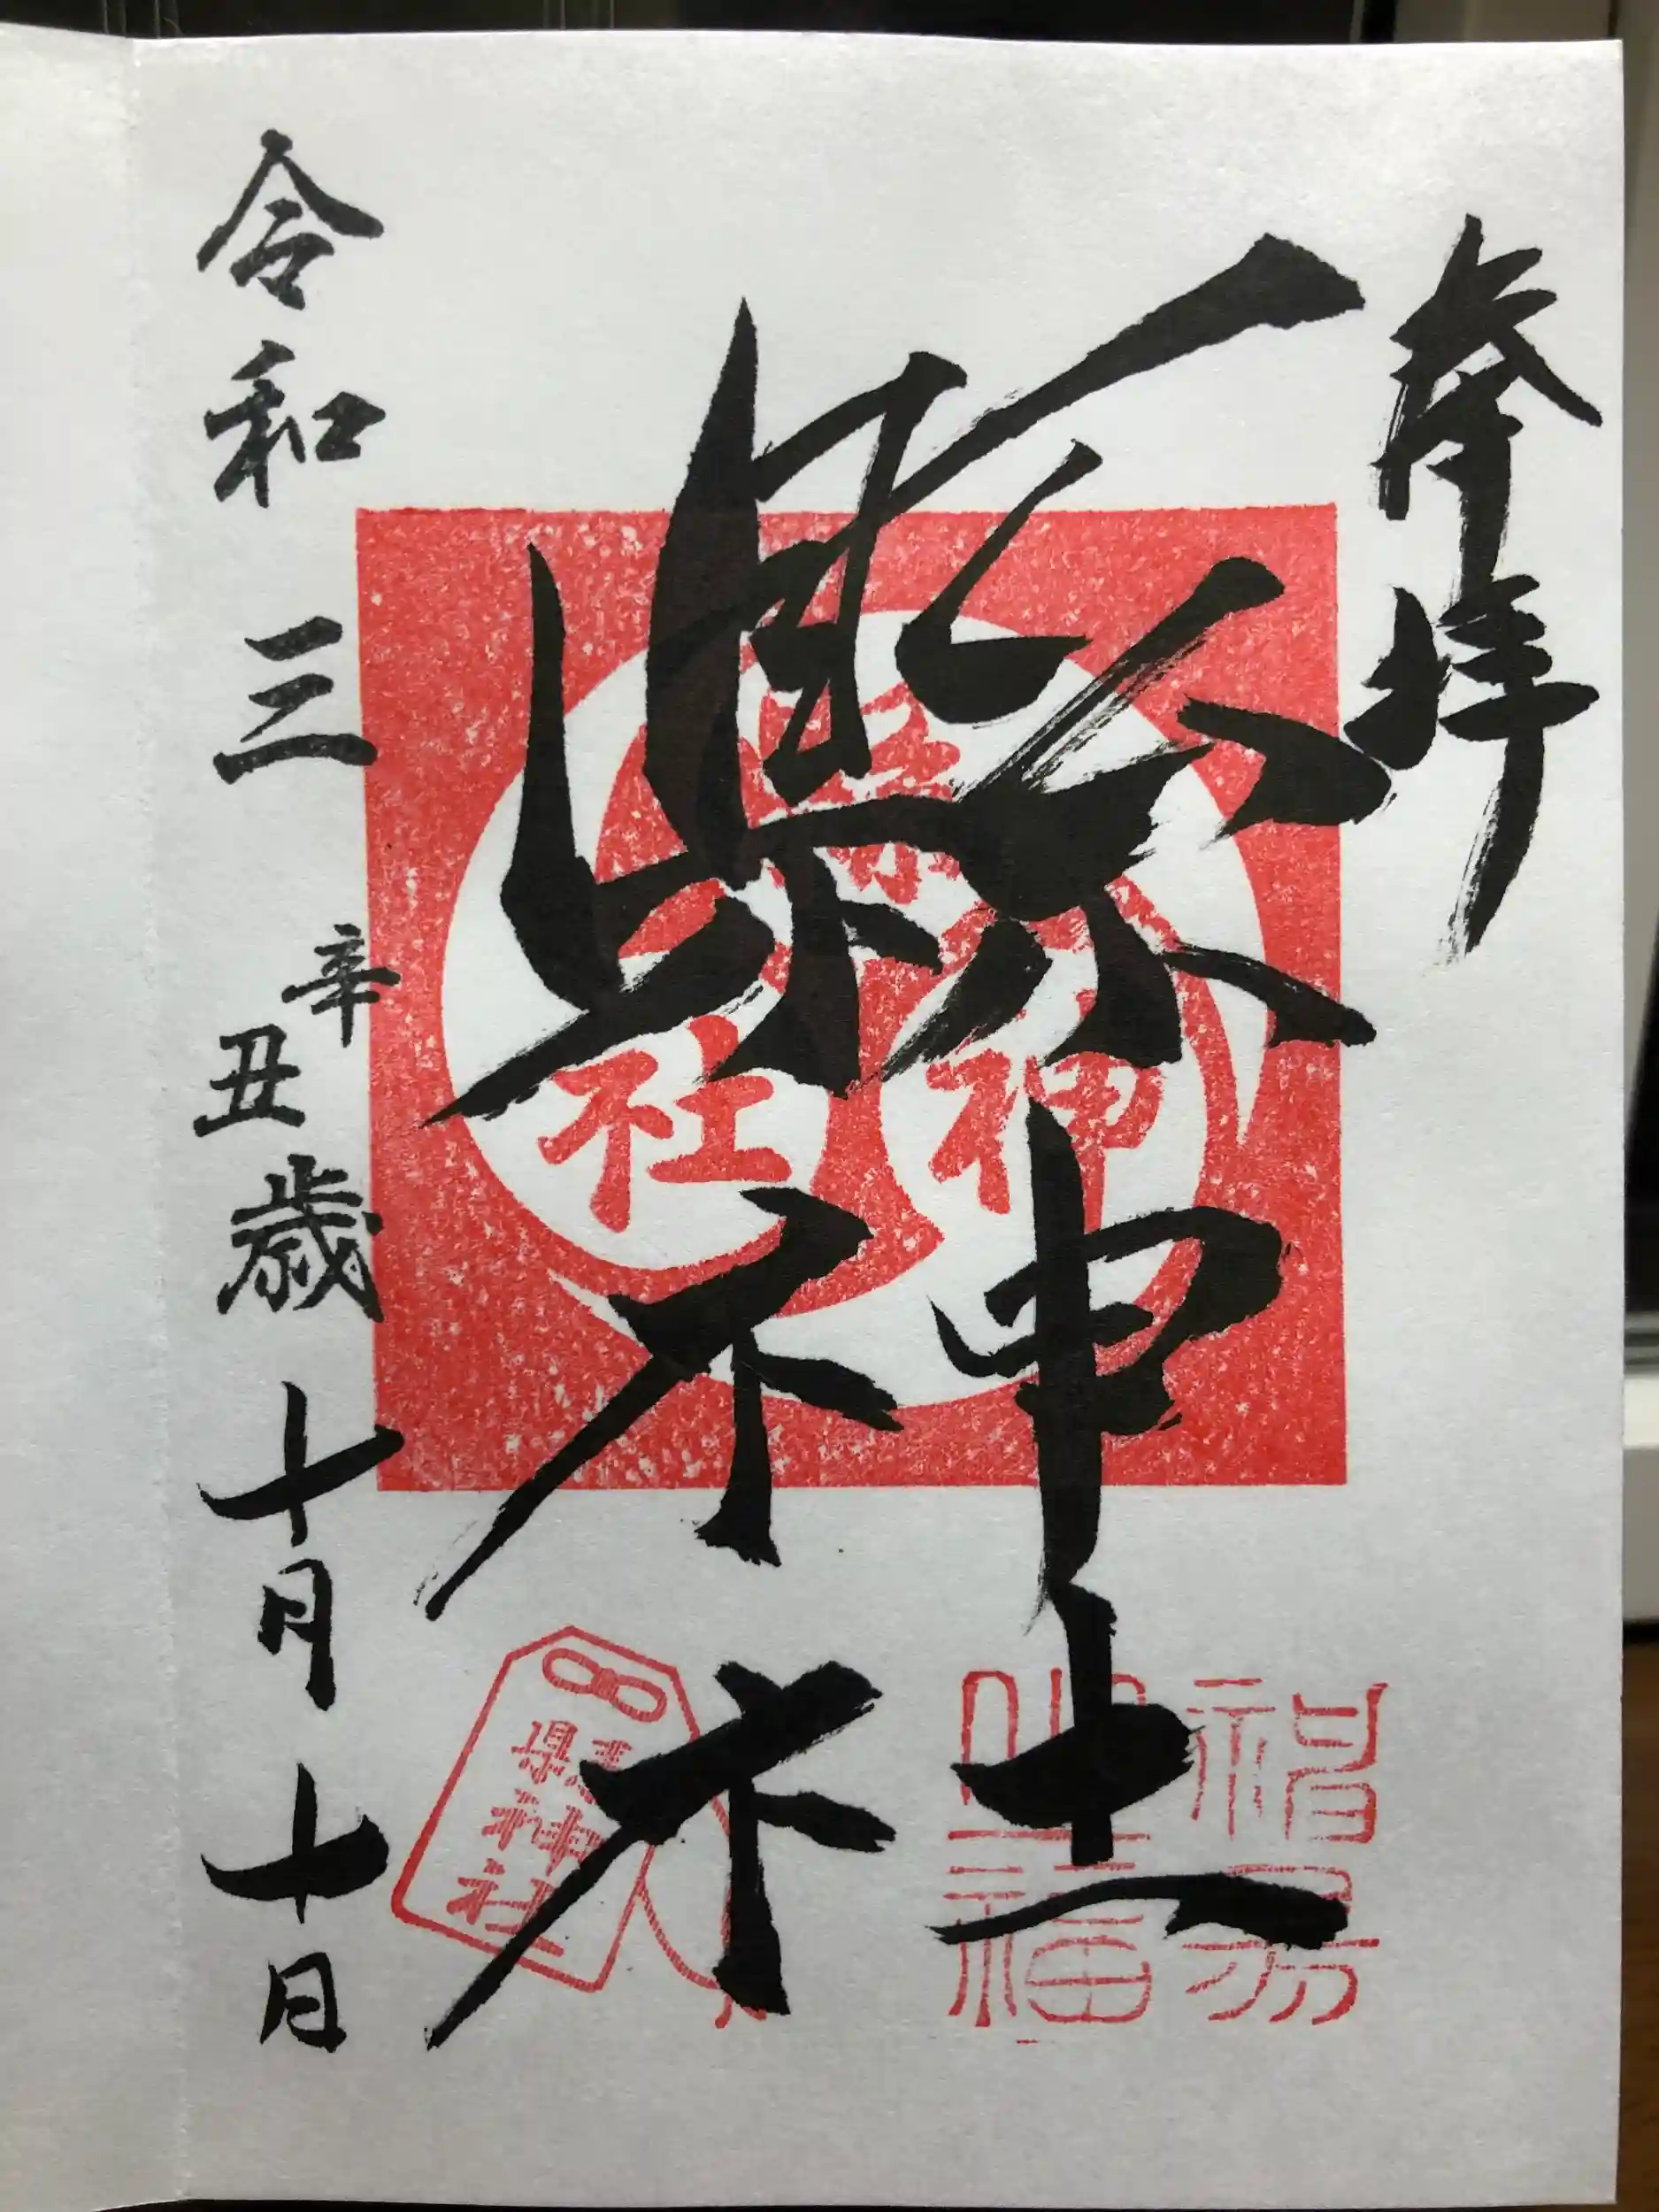 奉拝
縣神社
縣神社
縣神社
令和三辛丑歳十月十日